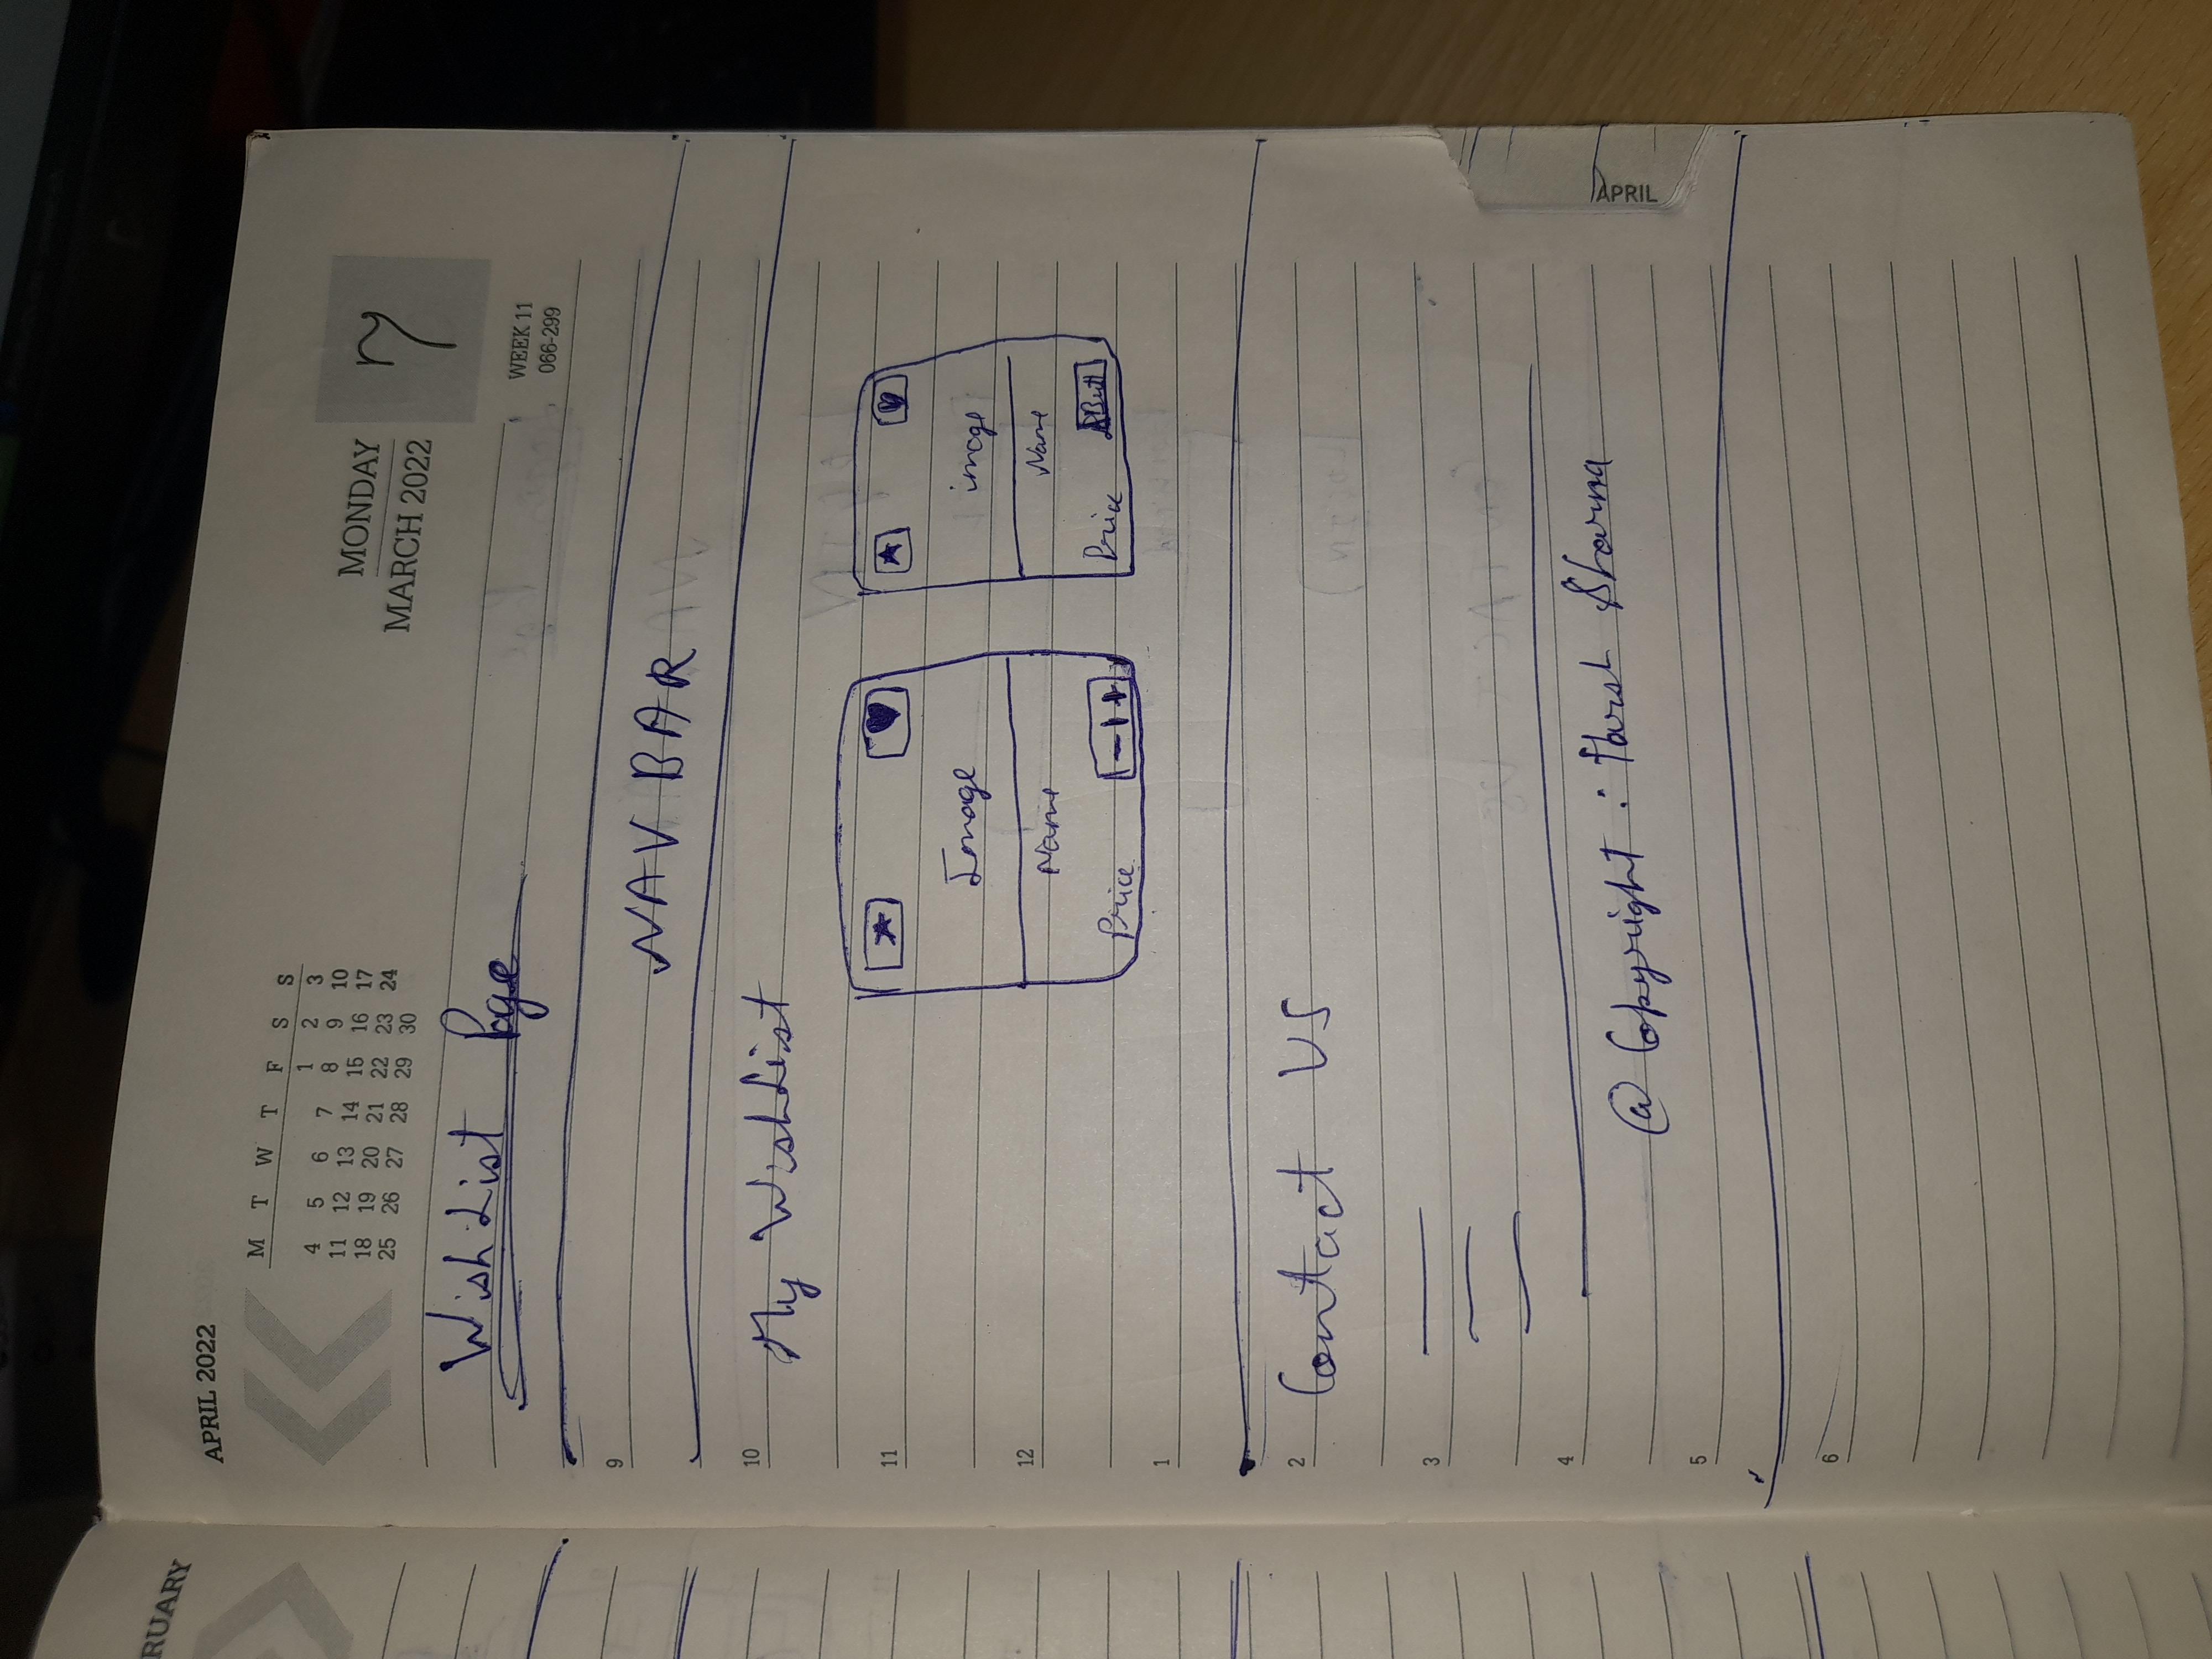 RUARY
APRIL 2022
M T W T F S S
1 2 3
4 5 6 7 8 9 10
11 12 13 14 15 16 17
18 19 20 21 22 23 24
25 26 27 28 29 30
MONDAY
MARCH 2022
7
WEEK 11
066-299
WishList Page
9
NAV BAR
10
My WishList
11
Image image
12
Name Name
Price - | + Price
1
2
Contact US
3
4
@ Copyright : Harsh Sharma
APRIL
5
6